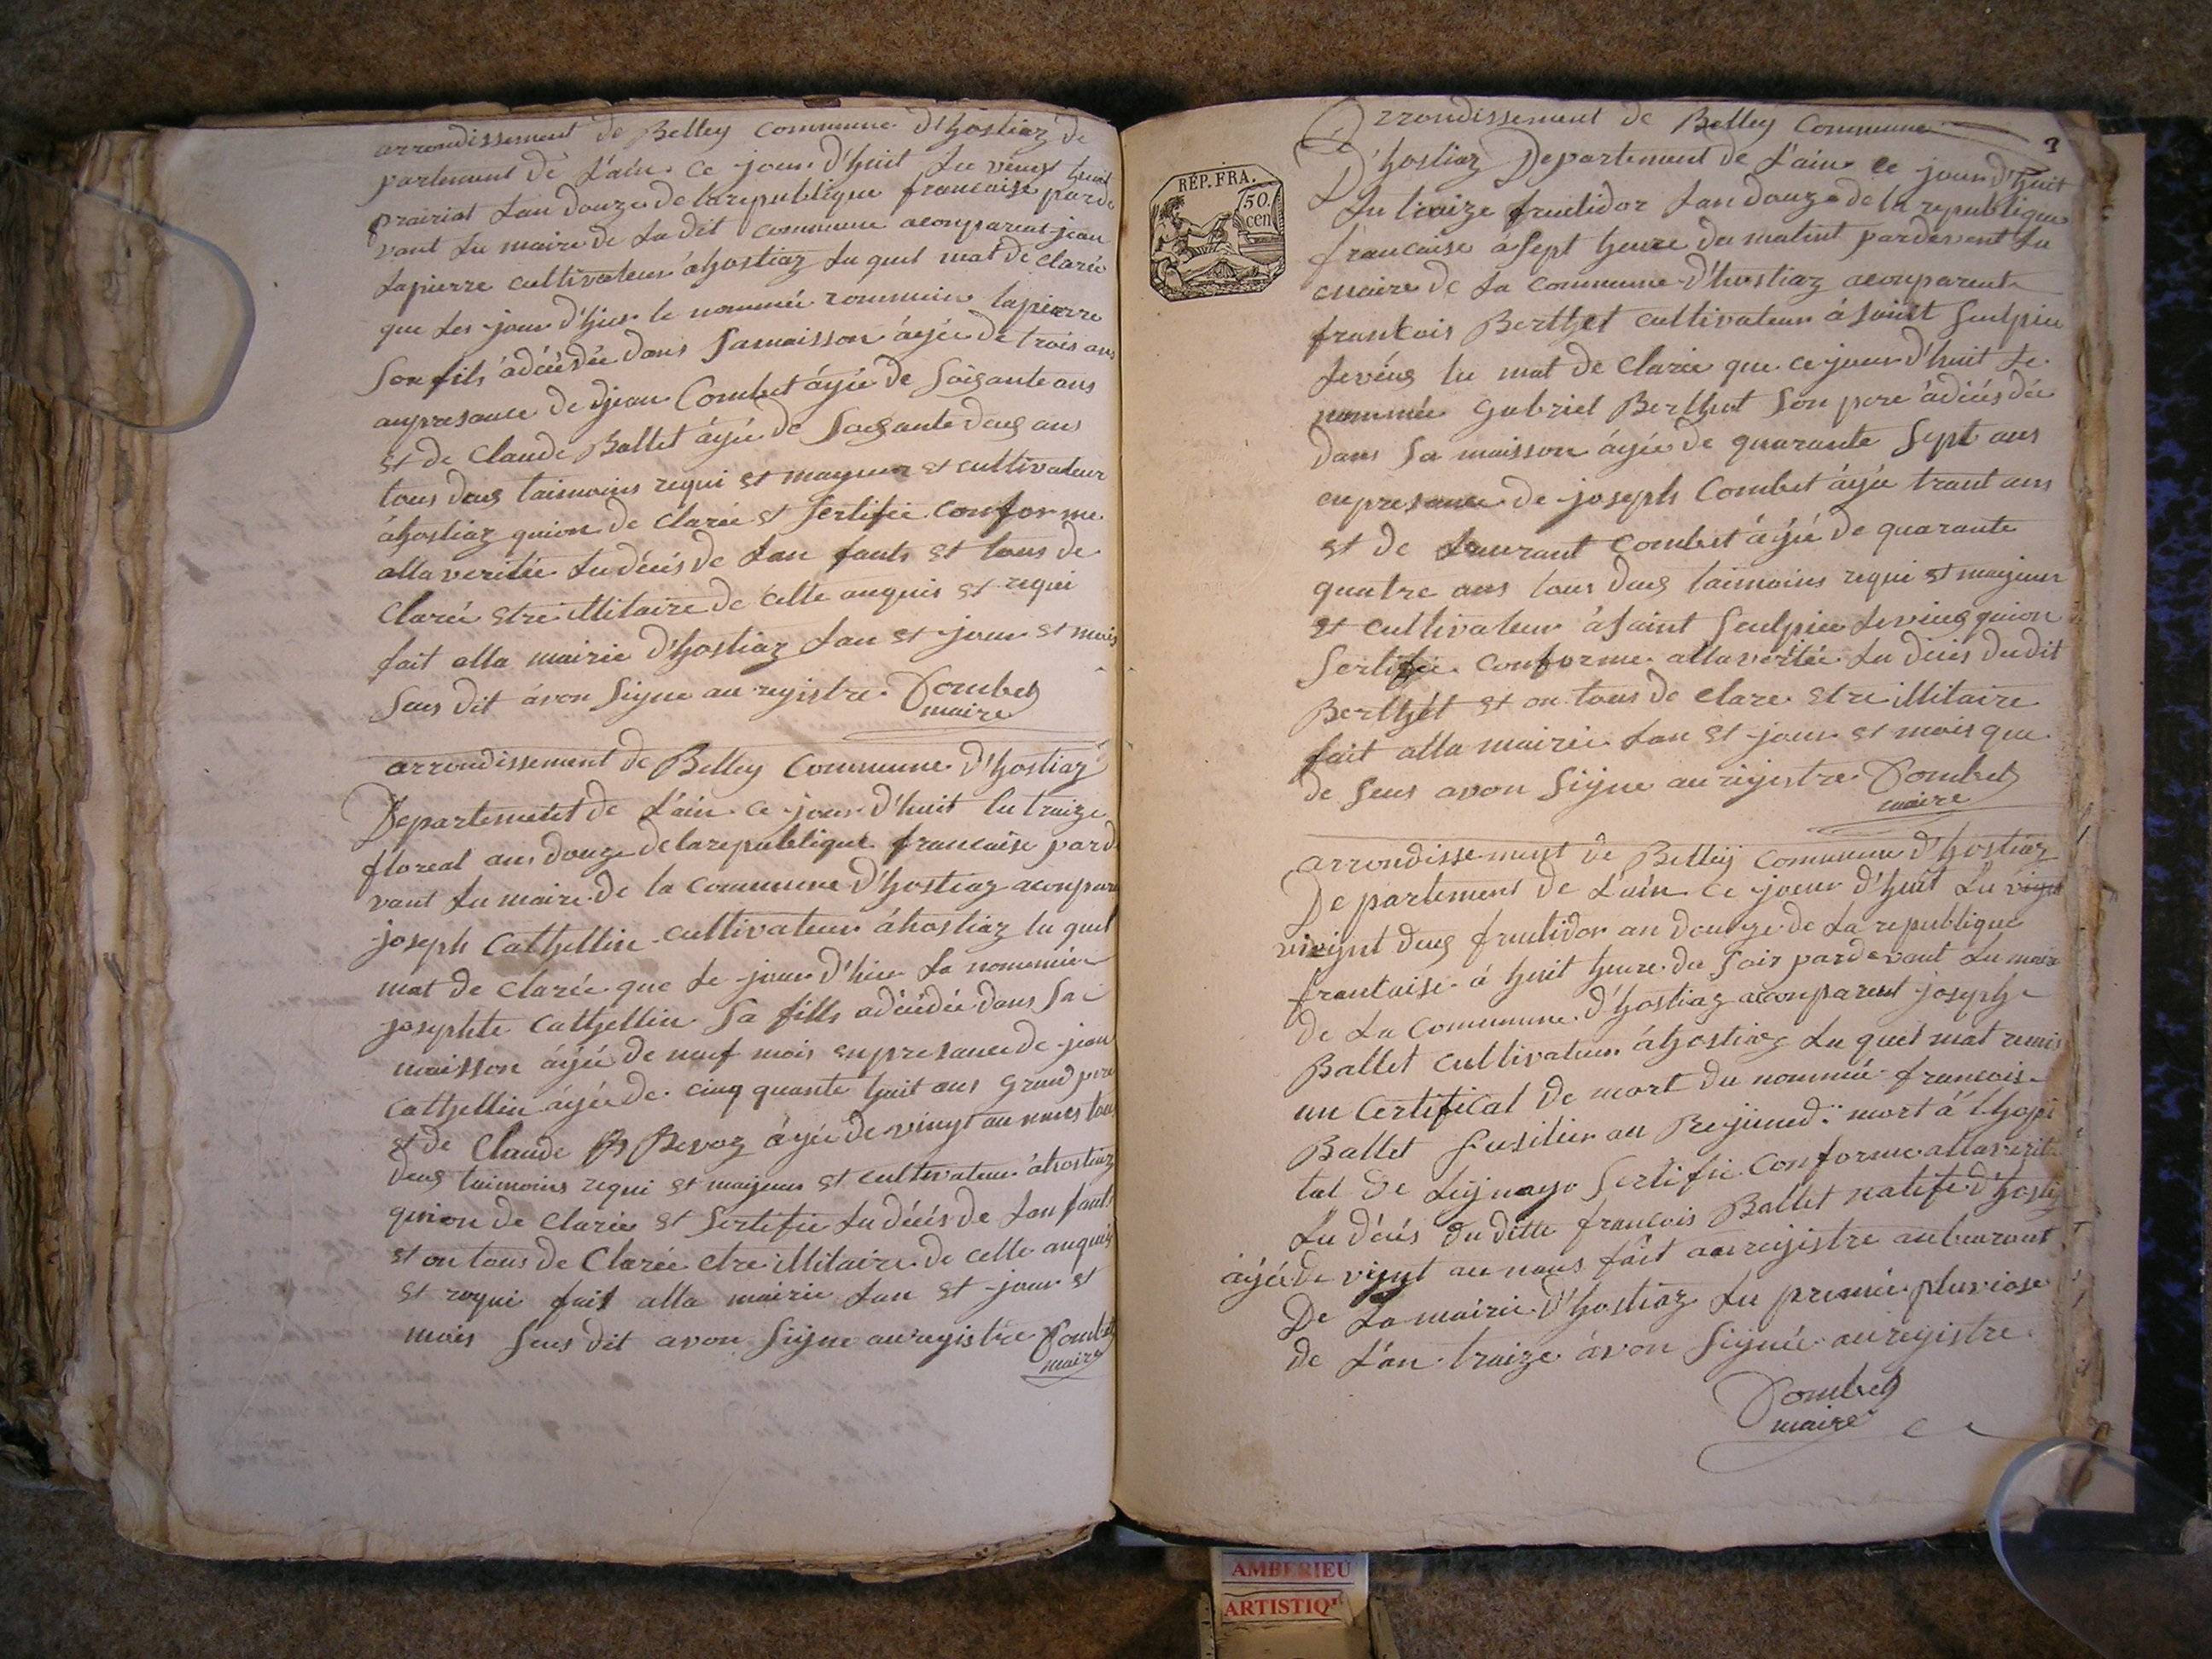 arrondissement de Belley Commune d'hostiaz de
partement de L'ain ce jour d'huit Lu vingt huit
prairial Lan douze de larepublique francaise parde
vant Lu maire de La dit commune aconparent jean
Lapierre cultivateur áhostiaz Lu quel mat de clarée
que Les jour d'hier le nommée rommein lapierre
Son fils ádécédée dans Samaisson áyée de trois ans
anpresance de djean Combet áyée de Soisante ans
et de Claude Ballet áyée de Soisante deus ans
tous deus taimoins requi et mayeur et cultivateur
áhostiaz quion de clarée et Sertifie conforme
alla veritée Lu décés de Lan fants et tous de
Clarée etre illitaire de célle anquis et requi
fait alla mairie d'hostiaz Lan et jour et mois
Seus dit ávon Signe au registre Combet
maire
arrondissement de Belley Commune d'hostiaz
Departemetet de L'ain ce jour d'huit lu traize
floreal ans douze de larepublique francaise pard
vant Lu maire de la commune d'hostiaz aconpare
joseph Cathellin cultivateur áhostiaz lu quel
mat de clarée que Le jour d'hier La nommée
josephte Cathellin Sa fills adécédée dans Sa
maisson áyée de neuf mois enpresance de jean
Cathellin áyée de cinq quante huit ans grand pere
et de Claude Bevoz áyée de vingt au nnes tous
deus taimoins requi et majeur et cultivateur áhostiaz
quion de clarée et Sertifie Lu décés de Lan fants
et on tous de Clarée etre illitaire de celle anquis
et requi fait alla mairie Lan et jour et
mois Seus dit avon Signe auregistre Combet
maire
3
RÉP. FRA.
50.
cen
Arrondissement de Belley Commune
D'hostiaz Departement de L'ain ce jour d'huit
Lu traize fructidor Lan douze de la republique
francaise á Sept heure du matint pardevent Lu
maire de La commune d'hostiaz aconparent
francois Berthet cultivateur á Saint Seulpiee
Levieus lu mat de Clarée que ce jour d'huit Le
nommée Gabriel Berthet Son pere ádécésdée
dans Sa maisson áyée de quarante Sept ans
enpresance de joseph Combet áyée trant ans
et de Laurant Combet áyée de quarante
quatre ans tous deus taimoins requi et majeur
et cultivateur áSaint Seulpiee Levieus quion
Sertifie conforme alla vertée Lu décés dudit
Berthet et on tous de clare etre illitaire
fait alla mairie Lan et jour et mois que
de Seus avon Signe au rejistre Combet
maire
arrondissement de Belley commune d'hostiaz
Departement de L'ain ce jour d'huit Lu vignt
vieignt deus frutidor an douze de La republique
francaise á huit heure du Soir pardevant Lu maire
de La commune d'hostiaz aconparent joseph
Ballet cultivateur áhostiaz Lu quel mat remis
un Certifical de mort du nommée francois
Ballet fusilier au Rejimed mort á Lhopi
tal de Lignago Sertifie Conforme alla verite
Lu décés du ditte francois Ballet natife d'hostiaz
áyée de vignt au nnes fait au rejistre aubeurant
De La mairie d'hostiaz Lu premie pluviose
de L'an traize ávon Signée au registre
Combet
maire
AMBERIEU
ARTISTIQ